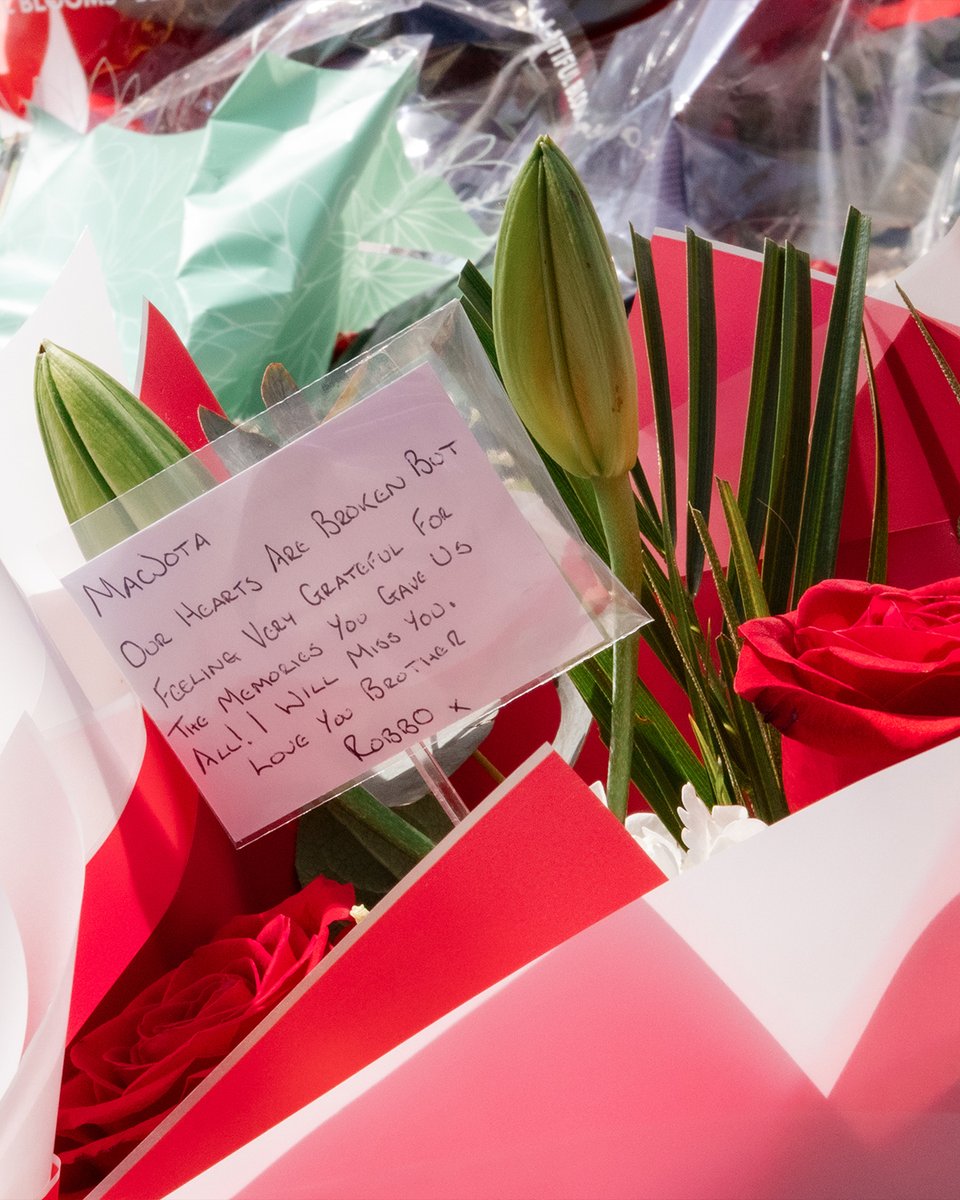 BLOOMS
MACJOTA
OUR HEARTS ARE BROKEN BUT
FEELING VERY GRATEFUL FOR
THE MEMORIES YOU GAVE US
ALL! I WILL MISS YOU.
LOVE YOU BROTHER
ROBBO x